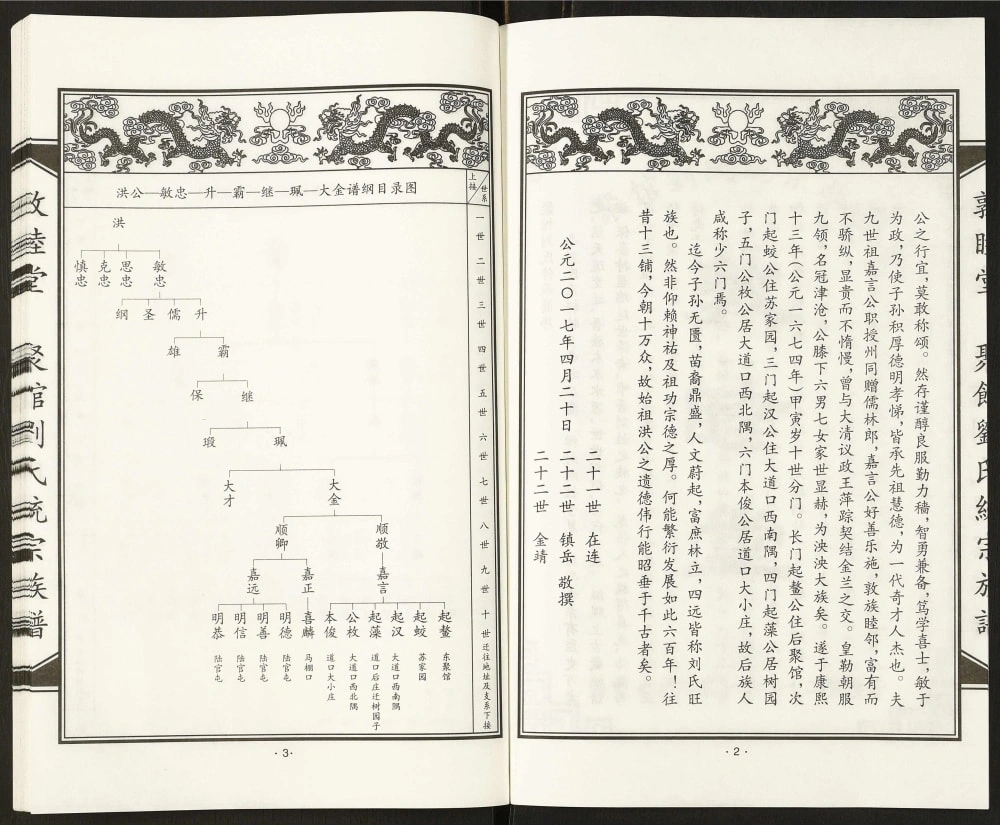 公之行宜，莫敢称颂。然存谨醇良服勤力穑，智勇兼备，笃学喜士，敏于
为政，乃使子孙积厚德明孝悌，皆承先祖慧德，为一代奇才人杰也。夫
九世祖嘉言公职授州同赠儒林郎，嘉言公好善乐施，敦族睦邻，富有而
不骄纵，显贵而不惰慢，曾与大清议政王萍踪契结金兰之交。皇勒朝服
九领，名冠津沧，公膝下六男七女家世显赫，为泱泱大族矣。遂于康熙
十三年（公元一六七四年）甲寅岁十世分门。长门起鳌公住后聚馆，次
门起蛟公住苏家园，三门起汉公住大道口西南隅，四门起藻公居树园
子，五门公枚公居大道口西北隅，六门本俊公居道口大小庄，故后族人
咸称少六门焉。
迄今子孙无匮，苗裔鼎盛，人文蔚起，富庶林立，四远皆称刘氏旺
族也。然非仰赖神祐及祖功宗德之厚。何能繁衍发展如此六百年！往
昔十三铺，今朝十万众，故始祖洪公之遗德伟行能昭垂于千古者矣。
公元二〇一七年四月二十日
二十一世 在连
二十二世 镇岳 敬撰
二十二世 金靖
·2·
洪公—敏忠—升—霸—继—珮—大金谱纲目录图
上接
世系
一世
二世
三世
四世
五世
六世
七世
八世
九世
十世迁往地址及支系下接
洪
敏忠
思忠
克忠
慎忠
升
儒
圣
纲
霸
雄
继
保
珮
瑕
大金
大才
顺敬
顺卿
嘉言
嘉正
嘉远
起鳌
起蛟
起汉
起藻
公枚
本俊
喜麟
明德
明善
明信
明恭
东聚馆
苏家园
大道口西南隅
道口后庄迁树园子
大道口西北隅
道口大小庄
马棚口
陆官屯
陆官屯
陆官屯
陆官屯
·3·
睦堂
氏统宗族谱